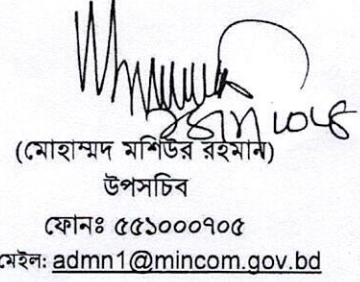 (মোহাম্মদ মশিউর রহমান)
উপসচিব
ফোনঃ ৫৫১০০০৭০৫
মেইল: admn1@mincom.gov.bd